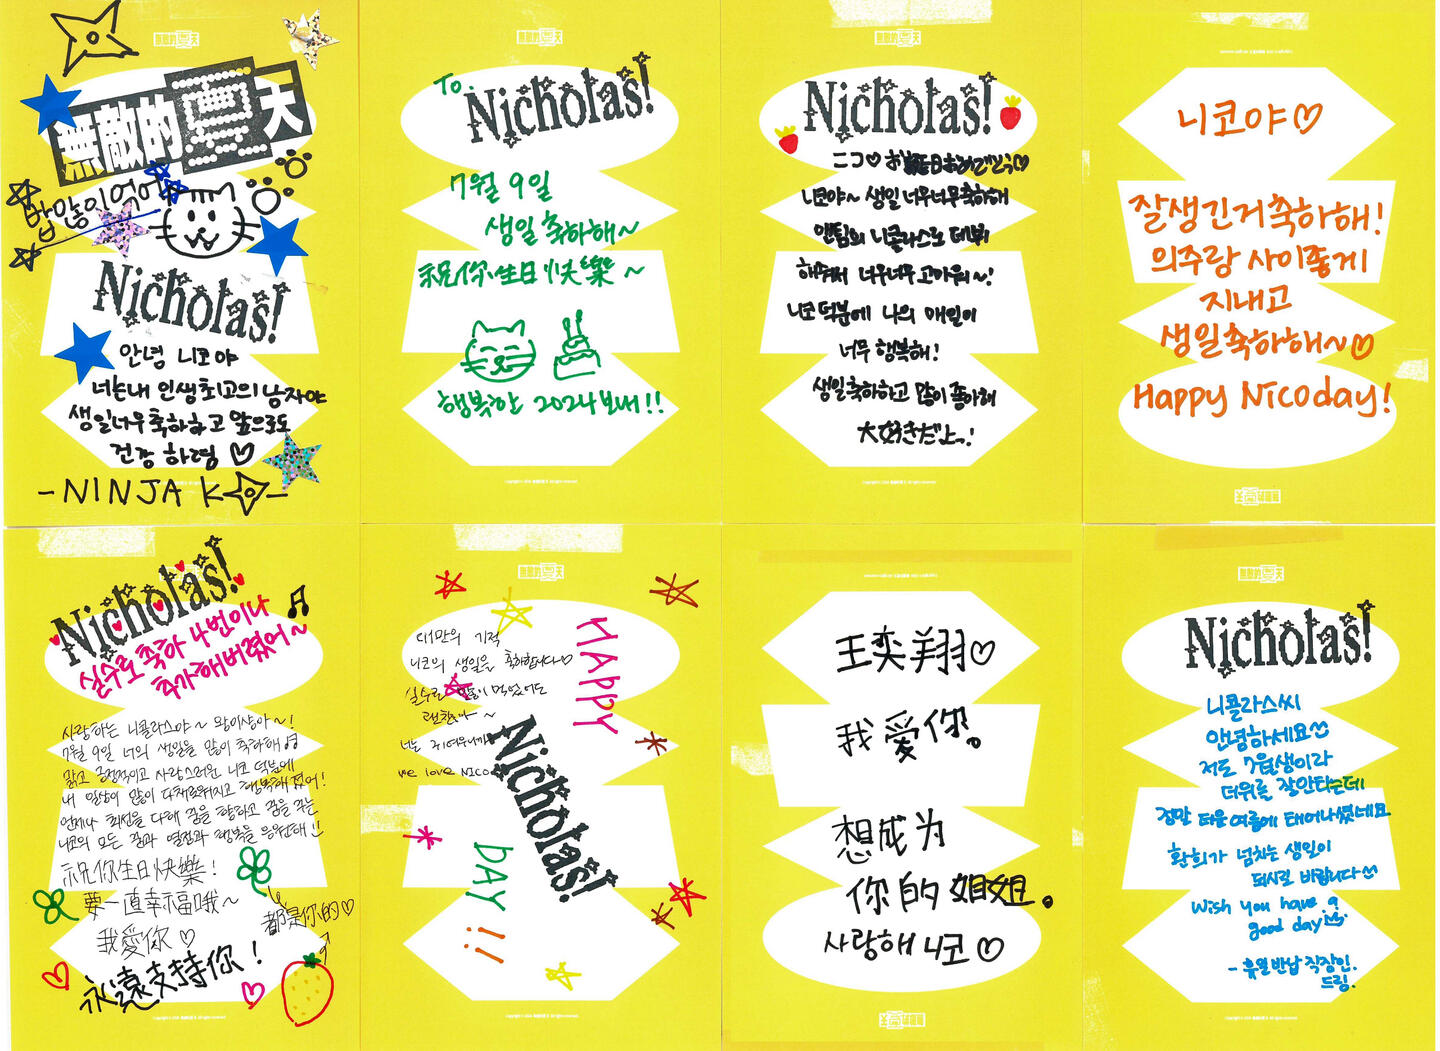 無敵的夏天
밥많이먹어
Nicholas!
안녕 니코야
너는 내 인생최고의 남자야
생일너무축하하고 앞으로도
건강 하렴 ♡
-NINJA K-
To. Nicholas!
7월 9일
생일 축하해~
祝你生日快樂~
행복한 2024보내!!
Nicholas!
ニコ♡ お誕生日おめでとう♡
니코야~ 생일 너무너무축하해
앤팀의 니콜라스로 데뷔
해줘서 너무너무 고마워~!
니코덕분에 나의 매일이
너무 행복해!
생일축하하고 많이 좋아해
大好きだよっ!
니코야♡
잘생긴거축하해!
의주랑 사이좋게
지내고
생일축하해~♡
Happy Nicoday!
Nicholas!
실수로 축하 4번이나
추가해버렸어~
사랑하는 니콜라스야~ 왕이샹아~!
7월 9일 너의 생일을 많이 축하해
맑고 긍정적이고 사랑스러운 니코 덕분에
내 일상이 많이 다채로워지고 행복해졌어!
언제나 최선을 다해 꿈을 향하고 꿈을 꾸는
니코의 모든 꿈과 열정과 행복을 응원해
祝你生日快樂!
要一直幸福哦~
我愛你♡
都是你的♡
永遠支持你!
대만의 기적
니코의 생일을 축하합니다♡
실수로 많이 먹었어도
괜찮아~
너는 귀여우니까
we love NICO
HAPPY
Nicholas!
DAY!!
王奕翔♡
我愛你。
想成为
你的姐姐。
사랑해 니코♡
Nicholas!
니콜라스씨
안녕하세요
저도 7월생이라
더위를 잘안타는데
정말 더운 여름에 태어나셨네요
환희가 넘치는 생일이
되시길 바랍니다
Wish you have a
good day
- 휴일반납 직장인.
드림.